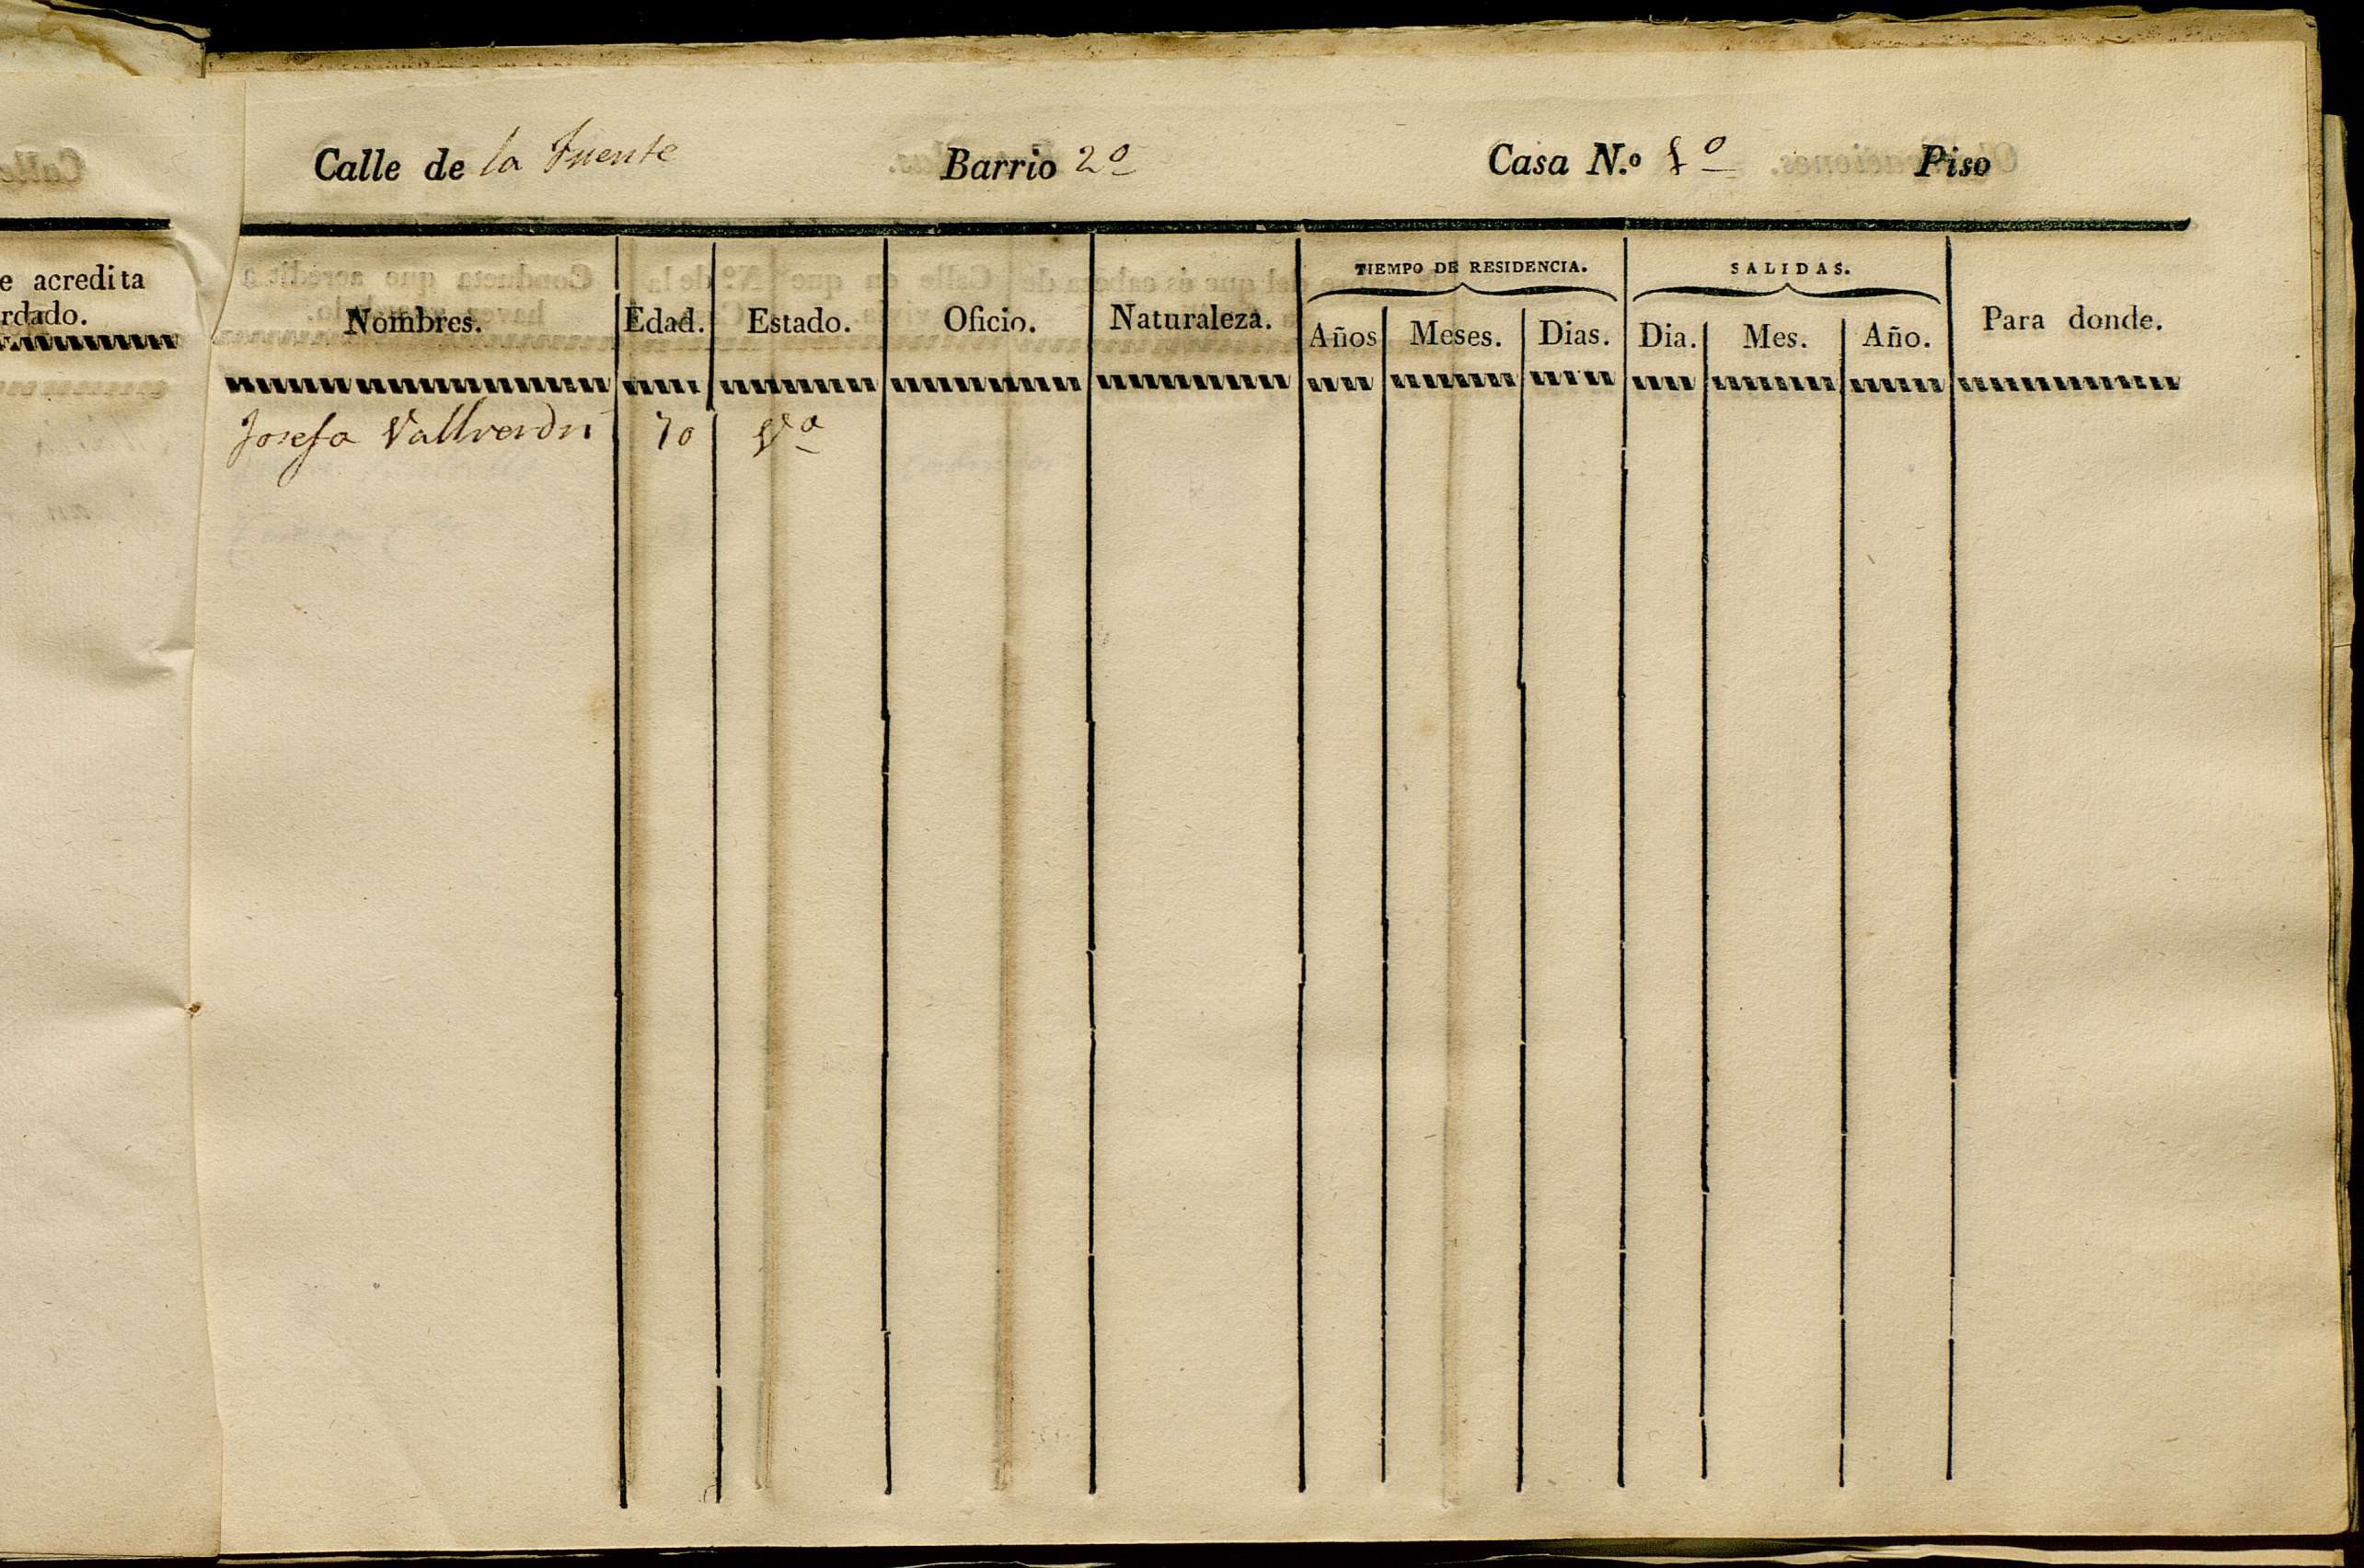 e acredita
rdado.
Calle de la Fuente Barrio 2º Casa N.º 1º Piso
Nombres. Edad. Estado. Oficio. Naturaleza. TIEMPO DE RESIDENCIA. Años Meses. Dias. SALIDAS. Dia. Mes. Año. Para donde.
Josefa Vallverdu 70 Vª